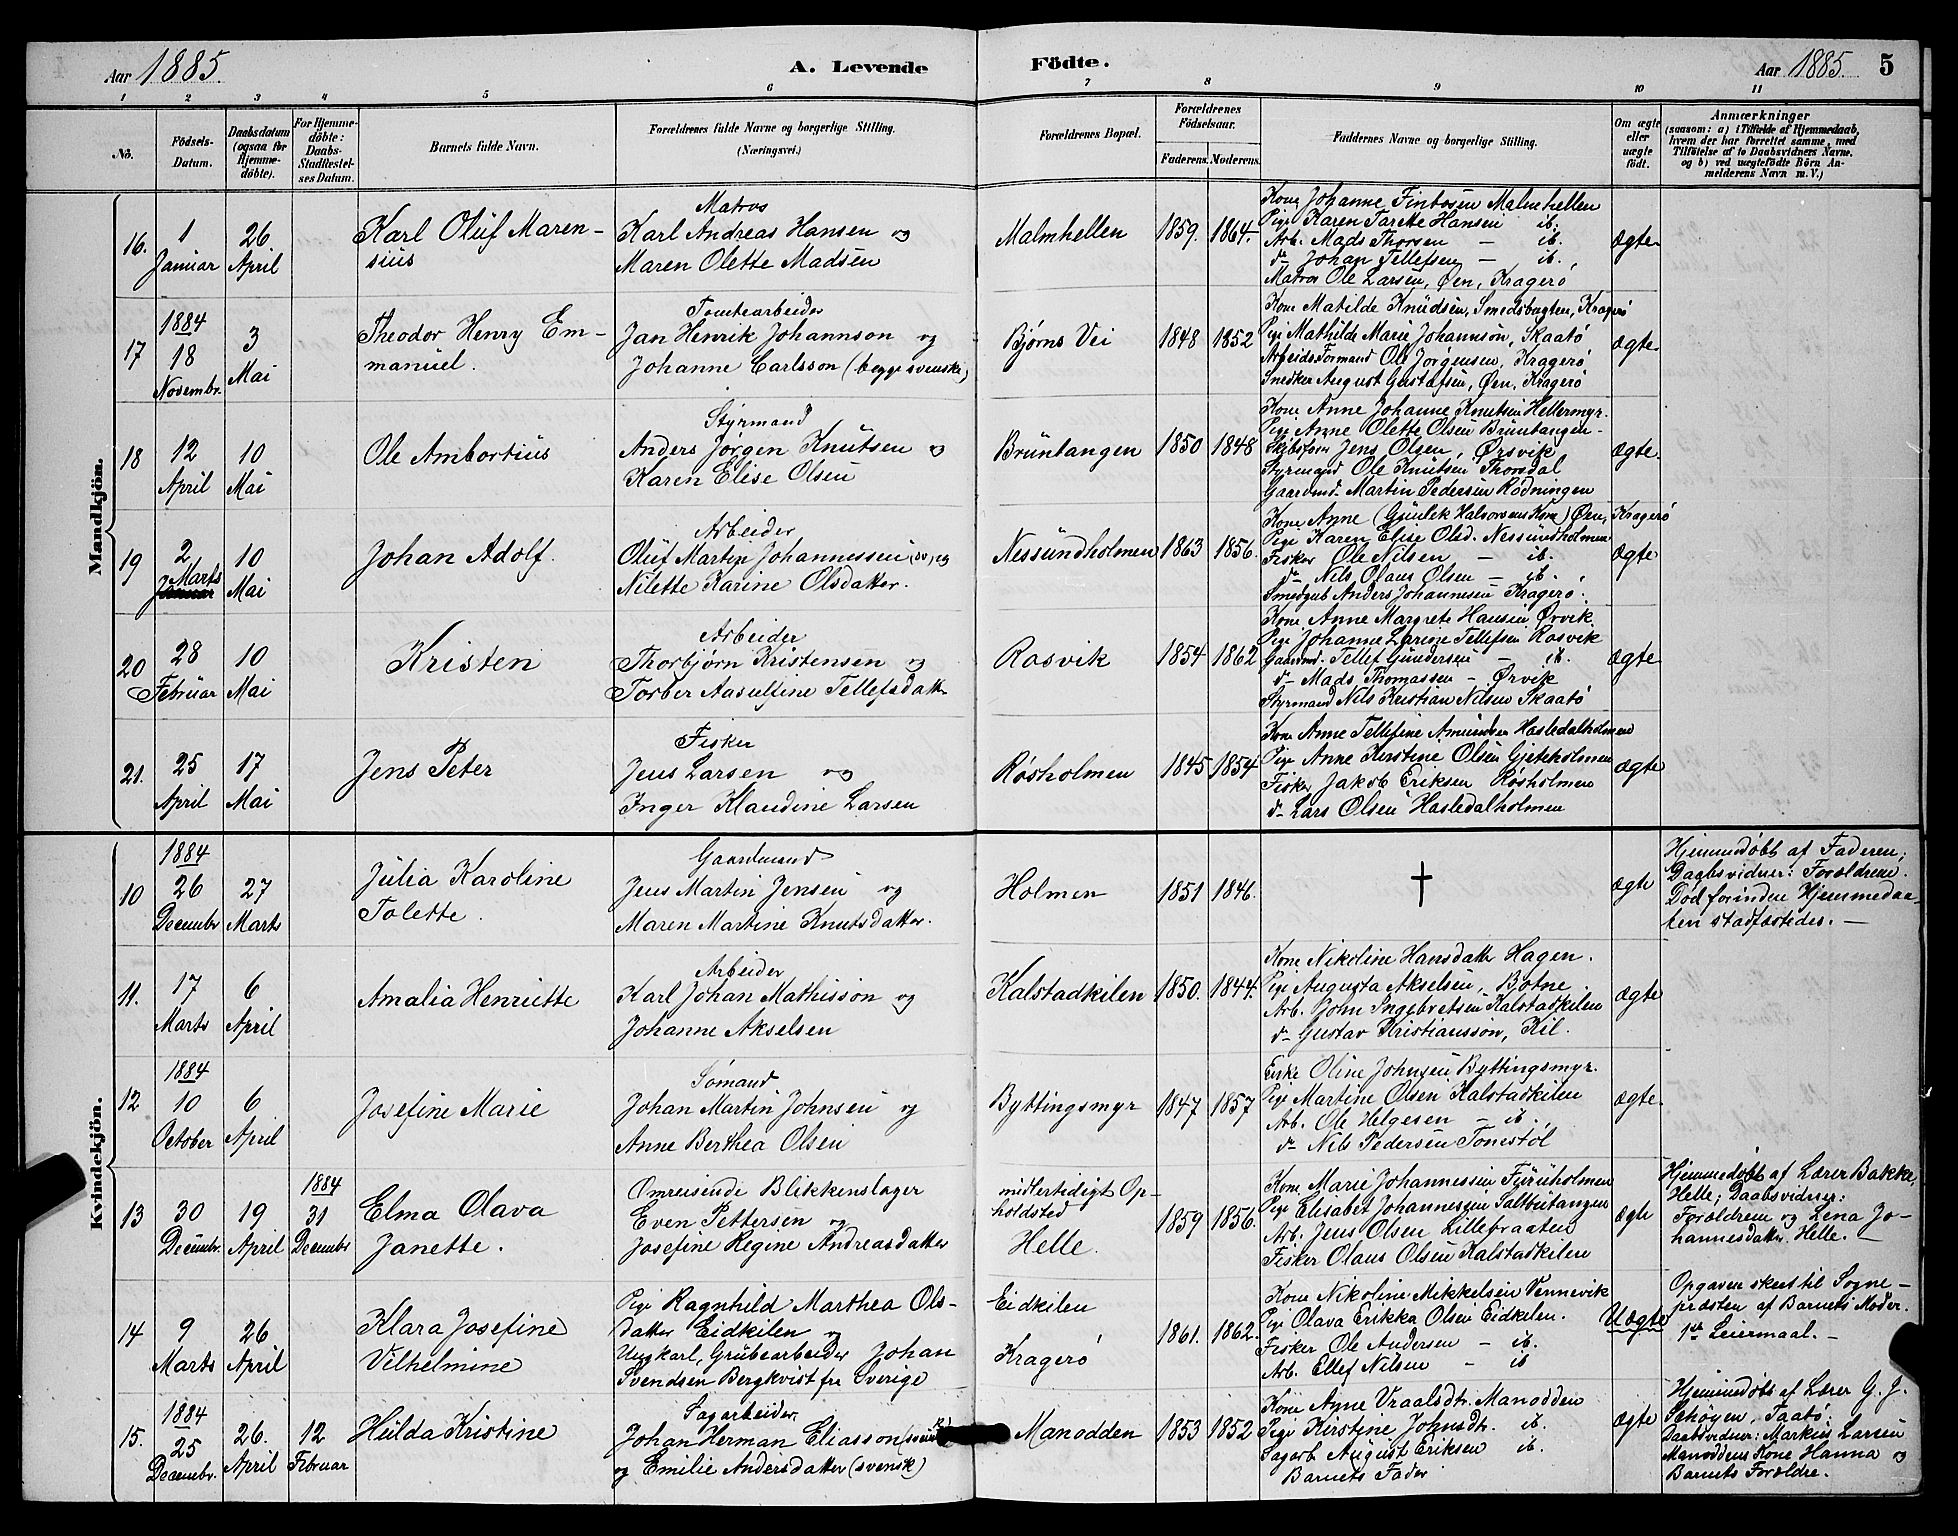 Aar 1885.
A. Levende
Födte.
Aar 1885. 5
1 2 3 4 5 6 7 8 9 10 11
No.
Födsels-
Datum.
Daabsdatum
(ogsaa for
Hjemme-
döbte).
For Hjemme-
döbte:
Daabs-
Stadfæstel-
ses Datum.
Barnets fulde Navn.
Forældrenes fulde Navne og borgerlige Stilling.
(Næringsvei.)
Forældrenes Bopæl.
Forældrenes
Födselsaar.
Faderens. Moderens.
Faddernes Navne og borgerlige Stilling.
Om ægte
eller
uægte
født.
Anmærkninger
(saasom: a) i Tilfælde af Hjemmedaab,
hvem der har forrettet samme, med
Tilföielse af to Daabsvidners Navne,
og b) ved uægtefödte Börn An-
melderens Navn m. V.)
Mandkjön.
16.
1
Januar
26
April
Karl Oluf Maren-
sius
Matros
Karl Andreas Hansen og
Maren Olette Madsen
Malmhellen
1859. 1864.
Kone Johanne Finbosen Malmhellen
Pige Karen Tarette Hansen ib.
Arb. Mads Thorsen — ib.
do Johan Tellefsen — ib.
Matros Ole Larsen, Øen, Kragerö
Ægte
17
1884
18
Novembr.
3
Mai
Theodor Henry Em-
manuel.
Tomtearbeider
Jan Henrik Johannson og
Johanne Carlsson (begge svenske)
Bjørns Vei
1848 1852
Kone Matilde Knudsen, Smedsbugten, Kragerö
Pige Mathilde Marie Johannson, Skaatö
Arbeids Formand Ole Jørgensen, Kragerö
Snedker August Gustafsen, Øen, Kragerö
Ægte
18
12
April
10
Mai
Ole Ambortius
Styrmand
Anders Jørgen Knutsen og
Karen Elise Olsen
Bruntangen
1850 1848
Kone Anne Johanne Knutsen Hellermyr.
Pige Anne Olette Olsen Bruntangen
Skibsfører Jens Olsen, Ørsvik
Styrmand Ole Knutsen Thorsdal
Gaarmd. Martin Pedersen Rödningen
Ægte.
19
2
Marts
Januar
10
Mai
Johan Adolf.
Arbeider
Oluf Martin Johannessen (sv.) og
Nilette Karine Olsdatter.
Nessundholmen
1863 1856.
Kone Anne (Gunlek Halvorsens Kone) Øen, Kragerö
Pige Karen Elise Olsd. Nessundholmen
Fisker Ole Nilsen — ib.
do Nils Olaus Olsen — ib.
Smedgub Anders Johannesen Kragerö.
Ægte
20
28
Februar
10
Mai
Kristen
Arbeider
Thorbjørn Kristensen og
Torber Aasulfine Tellefsdatter
Rosvik
1854 1862
Kone Anne Margrete Hansen Ørvik
Pige Johanne Larene Tellefsen Rosvik
Gaarmd. Tellef Gundersen — ib.
do Mads Thomassen — Ørvik
Styrmand Nils Kristian Nilsen Skaatö
Ægte
21.
25
April
17
Mai
Jens Peter
Fisker
Jens Larsen og
Inger Klaudine Larsen
Røsholmen
1845 1854
Kone Anne Tellefine Amundsen Hasledalholmen
Pige Anne Kerstine Olsen Gjeteholmen
Fisker Jakob Eriksen Røsholmen
do Lars Olsen Hasledalholmen
Ægte
Kvindekjön.
10
1884
26
Decembr
27
Marts
Julia Karoline
Tolette.
Gaardmand
Jens Martin Jensen og
Maren Martine Knutsdatter.
Holmen
1851 1846.
†
Ægte
Hjemmedøbt af Faderen;
Daabsvidner: Forældrene.
Død forinden Hjemmedaa-
ben stadfæstedes. —
11.
17
Marts
6
April
Amalia Henriette
Arbeider
Karl Johan Mathisson og
Johanne Akselsen
Kalstadkilen
1850. 1844.
Kone Nikoline Hansdatter Hagen.
Pige Augusta Akselsen, Botne
Arb. John Ingebretsen Kalstadkilen
do Gustav Kristiansson, Kil.
Ægte
12
1884
10
October
6
April
Josefine Marie
Sömand
Johan Martin Johnsen og
Anne Berthea Olsen
Byttingsmyr
1847 1857
Enke Oline Johnsen Byttingsmyr.
Pige Martine Olsen Kalstadkilen
Arb. Ole Helgesen — ib.
do Nils Pedersen Tonestöl
Ægte.
13
30
Decembr.
19
April
1884
31
Decembr
Elma Olava
Janette.
Omreisende Blikkenslager
Even Pettersen og
Josefine Regine Andreasdatter
midlertidigt Op-
holdsted
Helle.
1859 1856.
Kone Marie Johannessen Furuholmen
Pige Elisabet Johannesen Saltbutangen
Arb. Jens Olsen Lillebraaten
Fisker Olaus Olsen Kalstadkilen
Ægte
Hjemmedøbt af Lærer Bakke,
Helle; Daabsvidner:
Forældrene og Lena Jo-
hannesdatter Helle. —
14
9
Marts
26
April
Klara Josefine
Vilhelmine
Pige Ragnhild Marthea Ols-
datter Eidkilen og
Ungkarl, Grubearbeider Johan
Svendsen Bergkvist fra Sverige
Eidkilen
Kragerö
1861. 1862.
Kone Nikoline Mikkelsen Vennevik
Pige Olava Erikka Olsen Eidkilen.
Fisker Ole Andersen — ib.
Arb. Ellef Nilsen — ib
Uægte
Opgaven skeet til Sogne-
præsten af Barnets Moder.
1ste Leiermaal. —
15.
1884
25
Decembr.
26.
April
12
Februar
Hulda Kristine
Sagarbeider
Johan Herman Eliasson (svensk)
og Emilie Andersdatter (svensk)
Manodden
1853 1852
Kone Anne Vraalsdtr. Manodden
Pige Kirstine Johnsdtr. ib.
Sagarb August Eriksen ib.
Barnets Fader
Ægte
Hjemmedøbt af Lærer G. J.
Stköyen, Taatö;
Daabsvidner: Markus Larsen
Manoddens Kone Hanna og
Barnets Forældre.